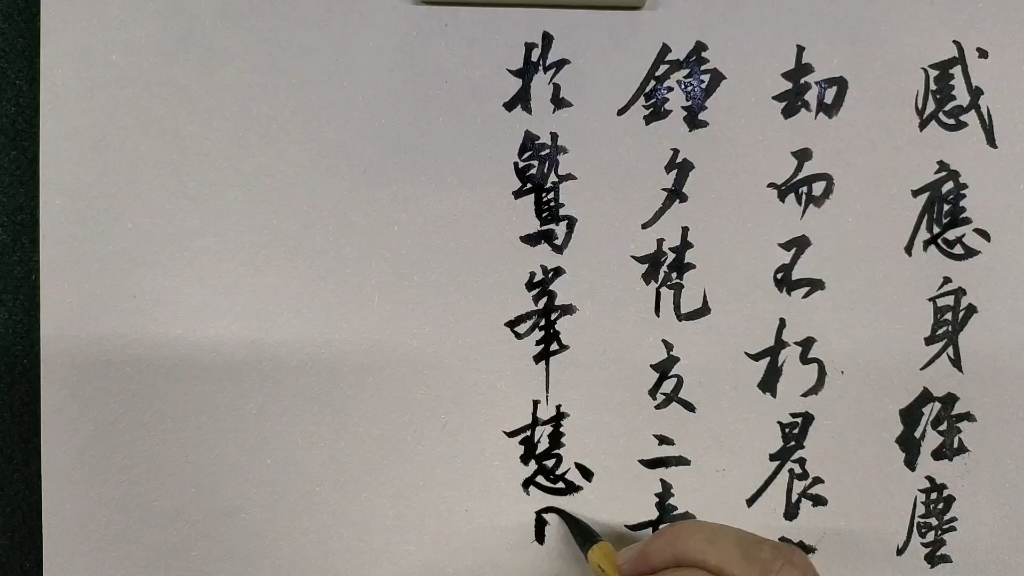 感應身經塵
劫而不朽晨
鍾夕梵交二
於鷲峯慧